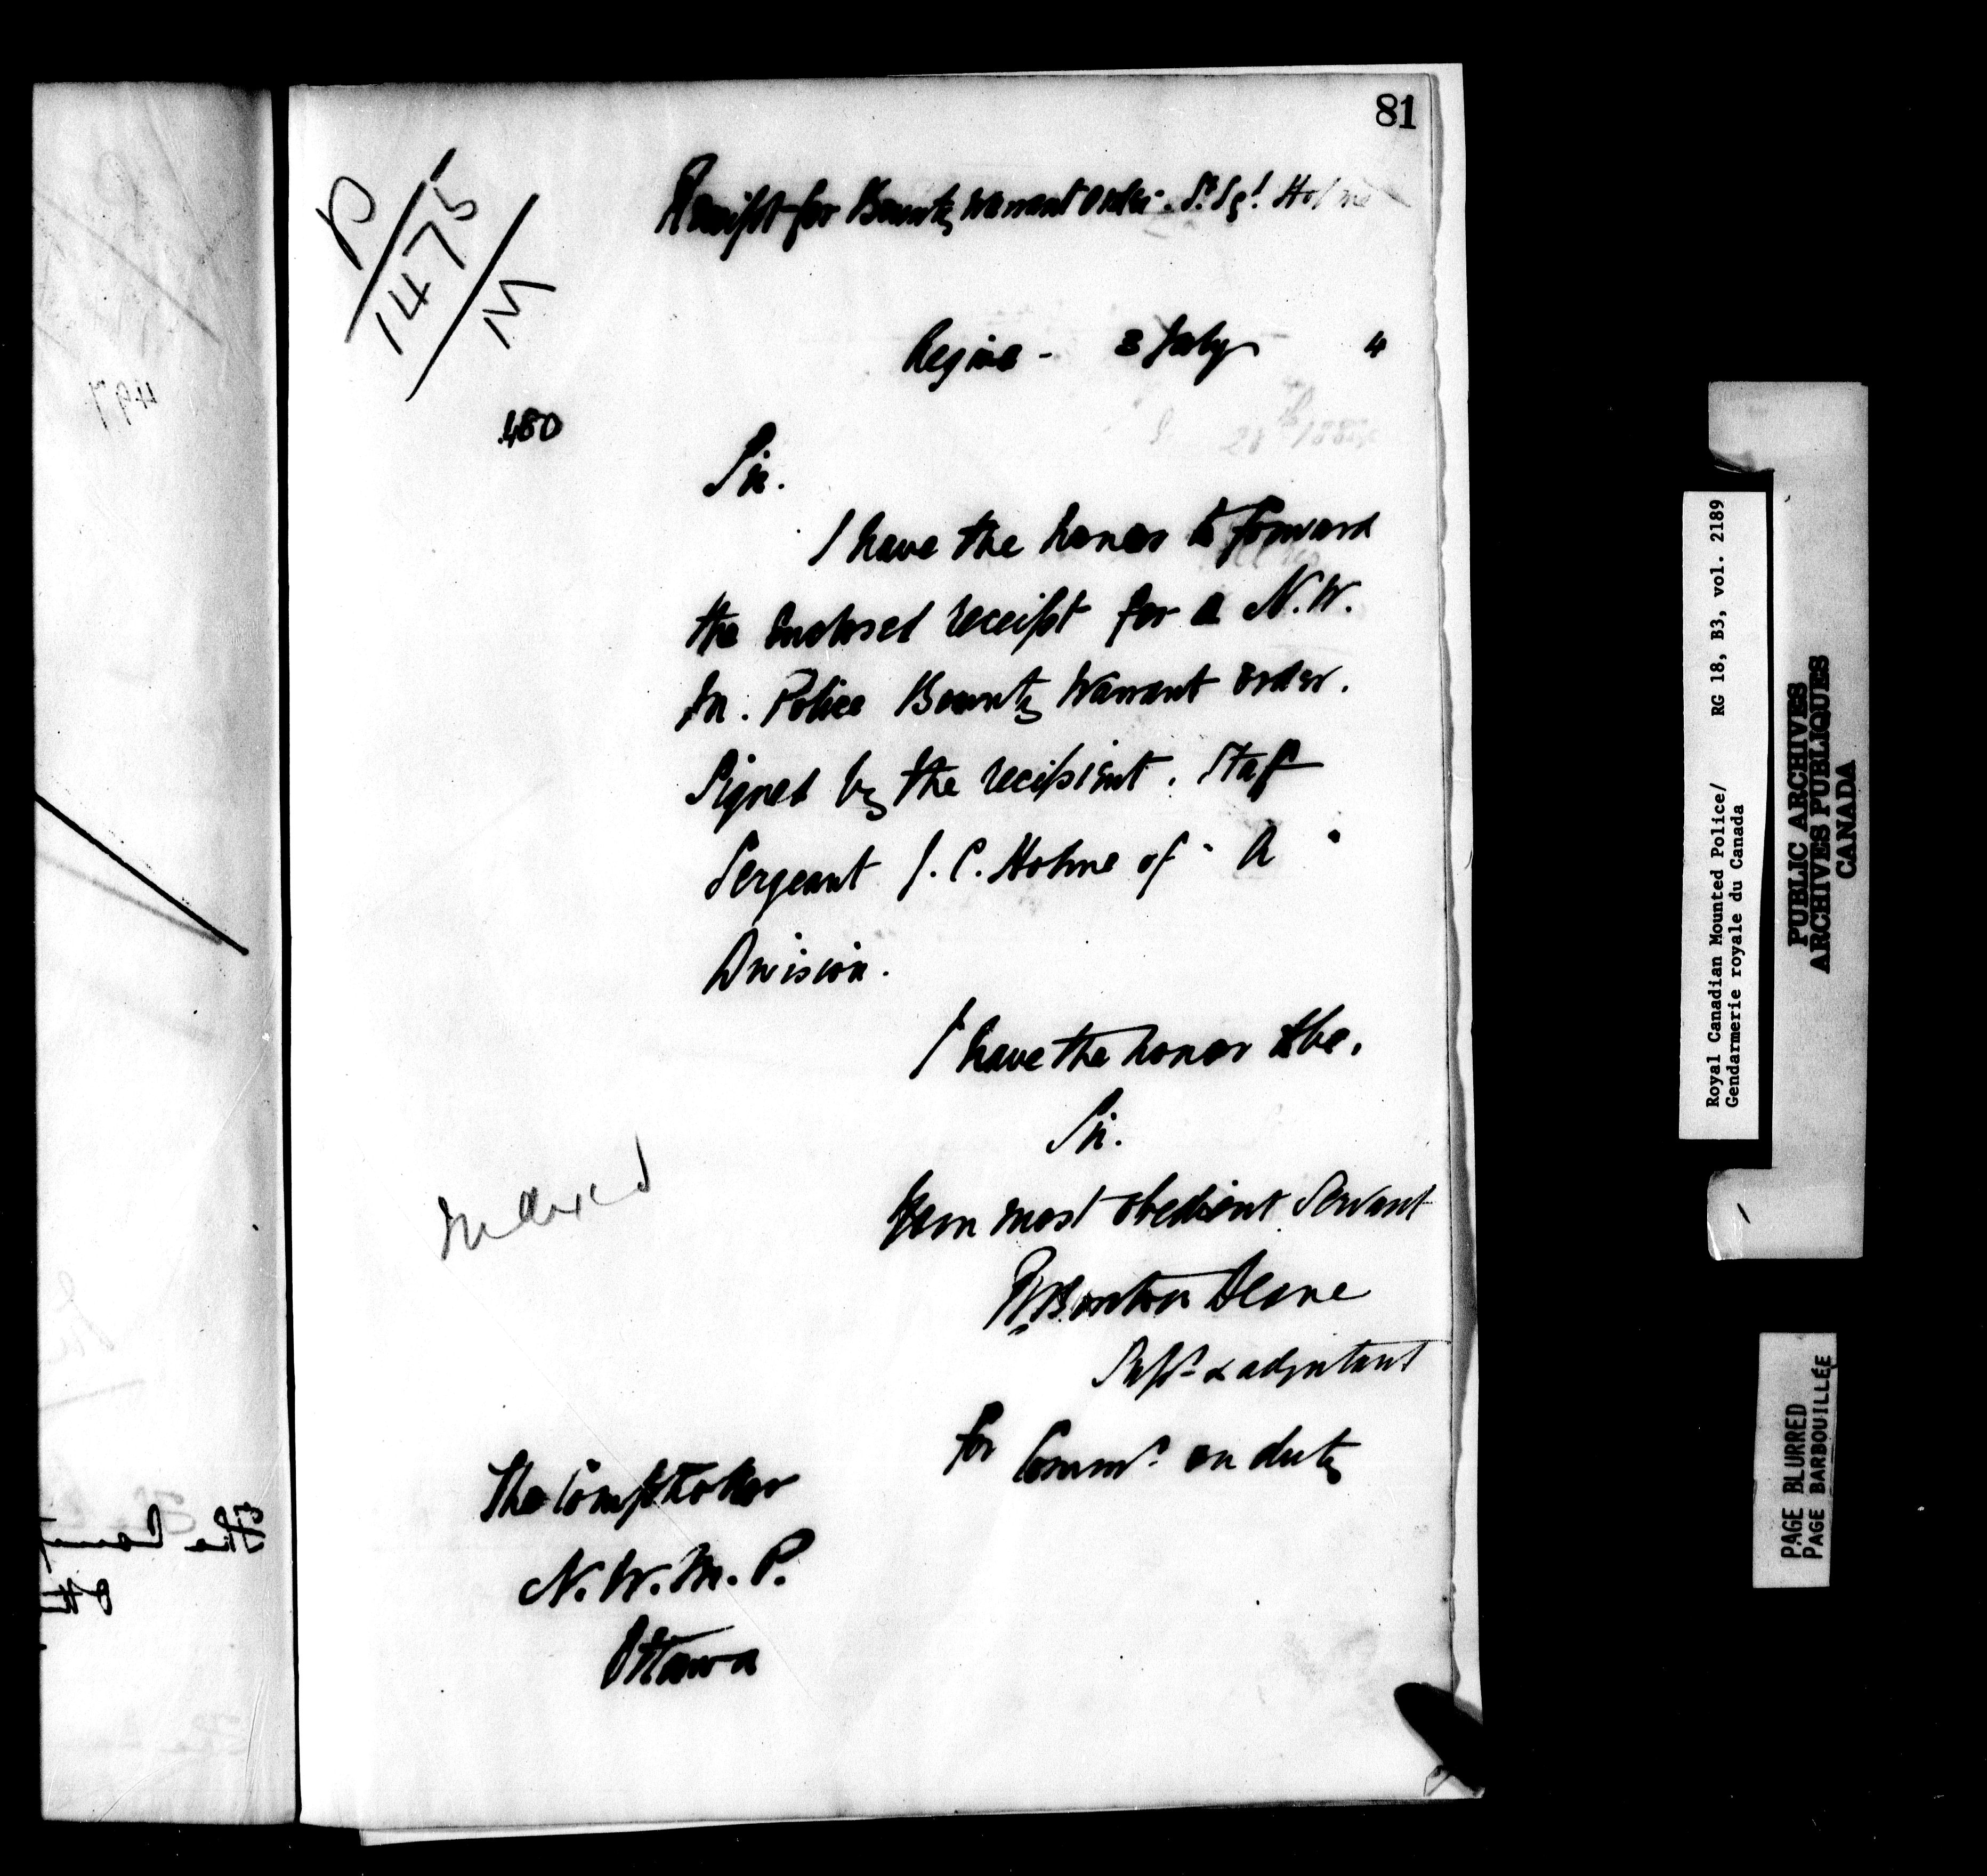 81
P
1475
M
Receipt for Bounty Warrant Order. St. Sgt. Holme
Regina - 3 July 4
480
Sir.
I have the honor to forward
the enclosed receipt for a N.W.
M. Police Bounty Warrant order.
Signed by the recipient. Staff
Sergeant J. C. Holme of "A"
Division.
I have the honor to be.
Sir.
Your most obedient Servant
R Burton Deane
Supt. & adjutant
for Commr. on duty
Indexed
The Comptroller
N. W. M. P.
Ottawa
Royal Canadian Mounted Police/ RG 18, B3, vol. 2189
Gendarmerie royale du Canada
PUBLIC ARCHIVES
ARCHIVES PUBLIQUES
CANADA
PAGE BLURRED
PAGE BARBOUILLÉE